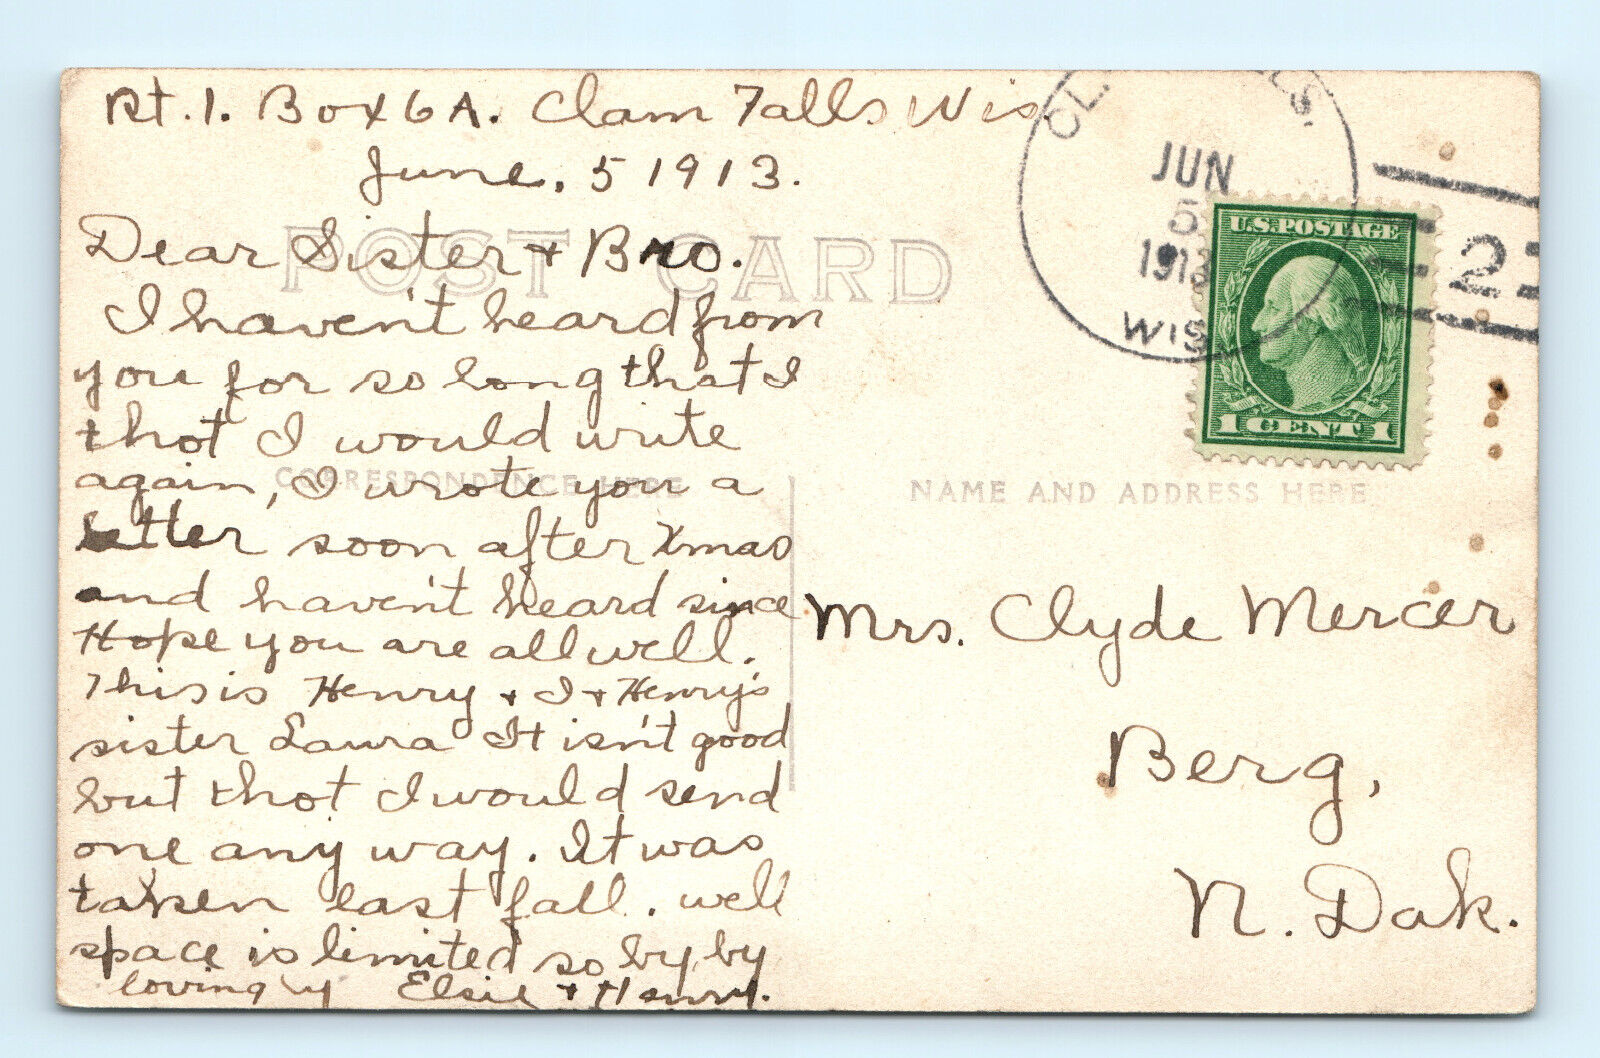 Rt. 1. Box 6A. Clam Falls Wis.
June. 5 1913.
Dear Sister + Bro.
I haven't heard from
you for so long that I
thot I would write
again, I wrote you a
letter soon after Xmas
and haven't heard since
Hope you are all well.
This is Henry + I + Henry's
sister Laura It isn't good
but thot I would send
one any way. It was
taken last fall. well
space is limited so by by
lovingly Elsie + Henry.
POST CARD
CORRESPONDENCE HERE
NAME AND ADDRESS HERE
JUN
5
1913
WIS
2
U.S. POSTAGE
1 CENT 1
Mrs. Clyde Mercer
Berg,
N. Dak.